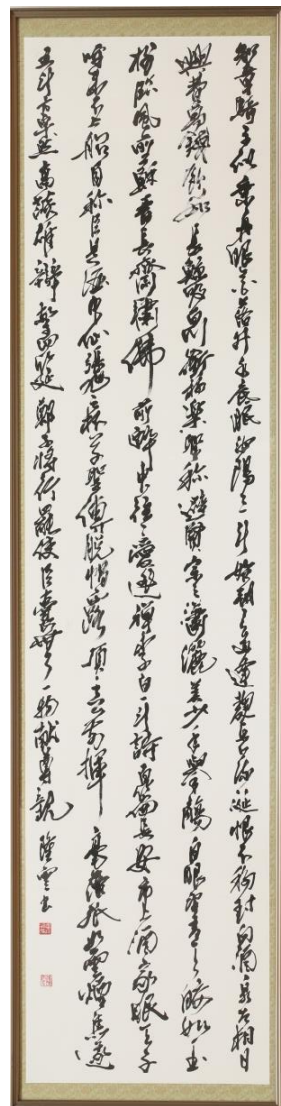 知章騎馬似乘船眼花落井水底眠汝陽三斗始朝天道逢麴車口流涎恨不移封向酒泉左相日
興費萬錢飲如長鯨吸百川銜杯樂聖稱避賢宗之瀟灑美少年舉觴白眼望青天皎如玉
樹臨風前蘇晉長齋繡佛前醉中往往愛逃禪李白一斗詩百篇長安市上酒家眠天子
呼來不上船自稱臣是酒中仙張旭三杯草聖傳脫帽露頂王公前揮毫落紙如雲煙焦遂
五斗方卓然高談雄辯驚四筵鄭子將行罷使臣囊無一物獻尊親